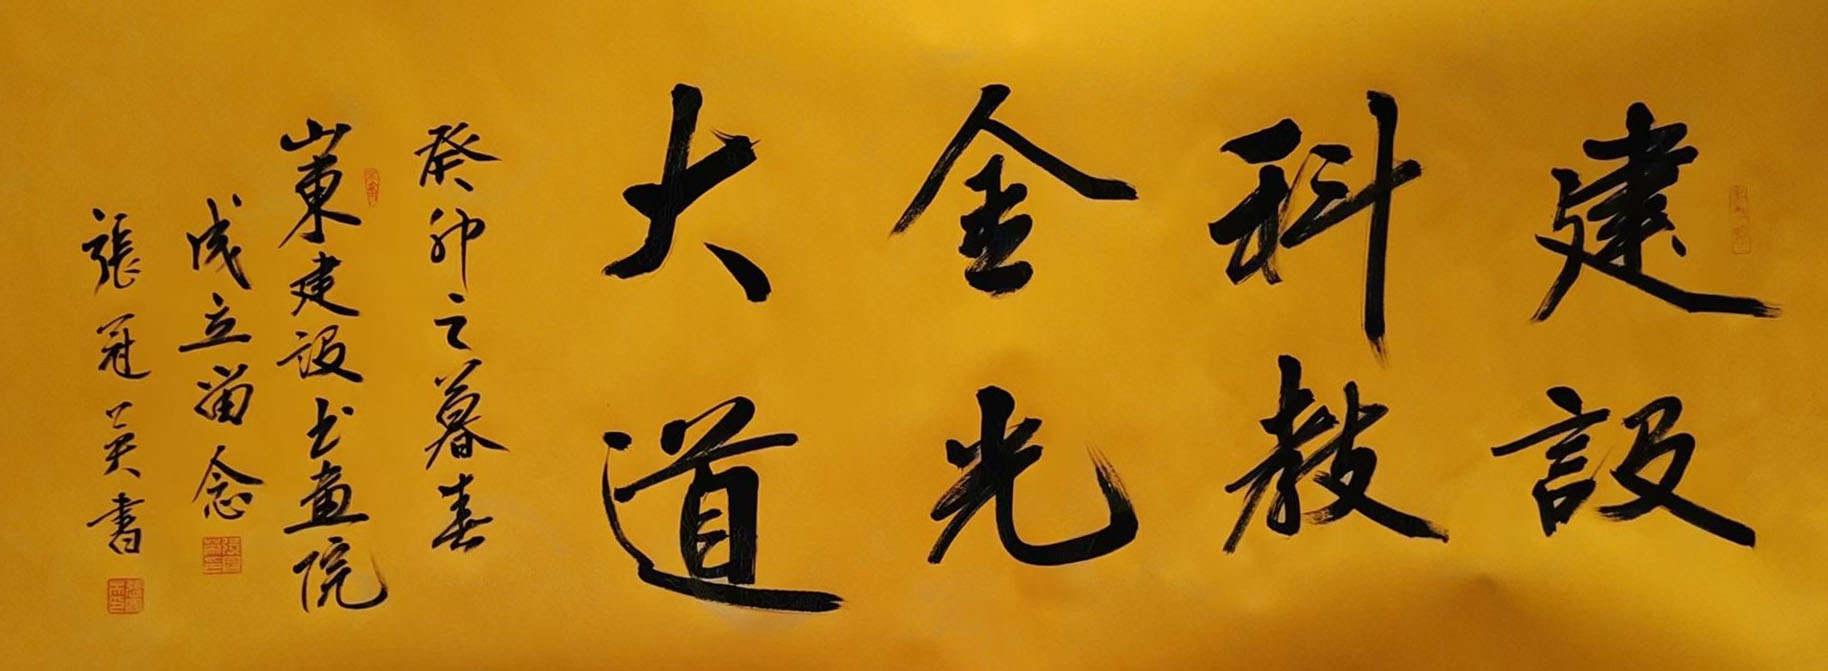 建設
科教
金光
大道
癸卯之暮春
山東建設书畫院
成立留念
張冠英書